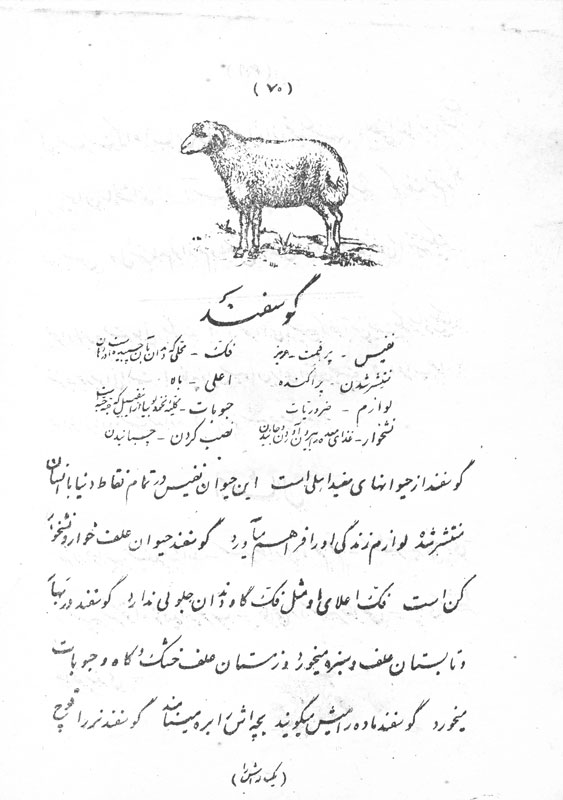 (۷۰)
گوسفند
نفیس - پر قیمت - عزیز فک -
منتشر شدن - پراکنده اعلی - بالا
لوازم - ضروریات حبوبات -
نشخوار - غذای معده را بیرون آوردن و جاویدن نصب کردن - چسپانیدن
گوسفند از حیوانهای مفید اهلی است این حیوان نفیس در تمام نقاط دنیا با انسان
منتشر شده لوازم زندگی او را فراهم میآورد گوسفند حیوان علف خوار و نشخوار
کن است فک اعلای او مثل فک گاو دندان جلوی ندارد گوسفند در بهار
و تابستان علف و سبزه میخورد و زمستان علف خشک و کاه و حبوبات
میخورد گوسفند ماده را میش میگویند بچه اش را بره مینامند گوسفند نر را قوچ